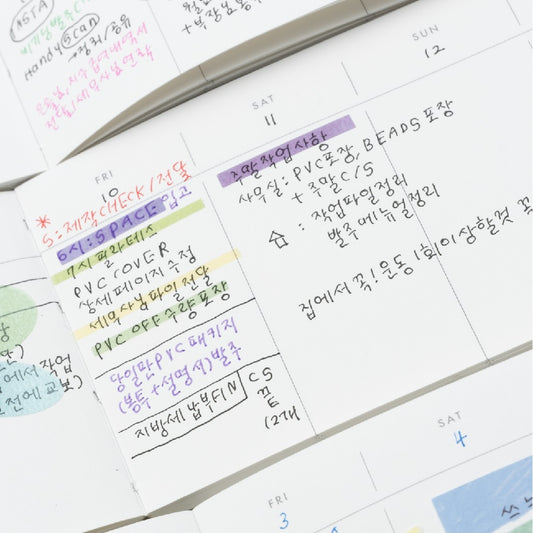 Handy Scan
→정리/공유
FRI
10
SAT
11
SUN
12
* S:제작CHECK/전달
6시:SPACE 입고
7시 필라테스
PVC COVER
상세페이지 수정
세무사님파일 전달
PVC OFF수량포장
당일판PVC패키지
(봉투+설명서)발주
지방세 납부FIN
CS
끝
(2개
주말 작업사항
사무실:PVC포장,BEADS포장
+ 주말C/S
: 작업파일정리
발주메뉴얼정리
집에서 꼭! 운동 1회이상할것 꼭
에서 작업
전에교보)
FRI
3
SAT
4